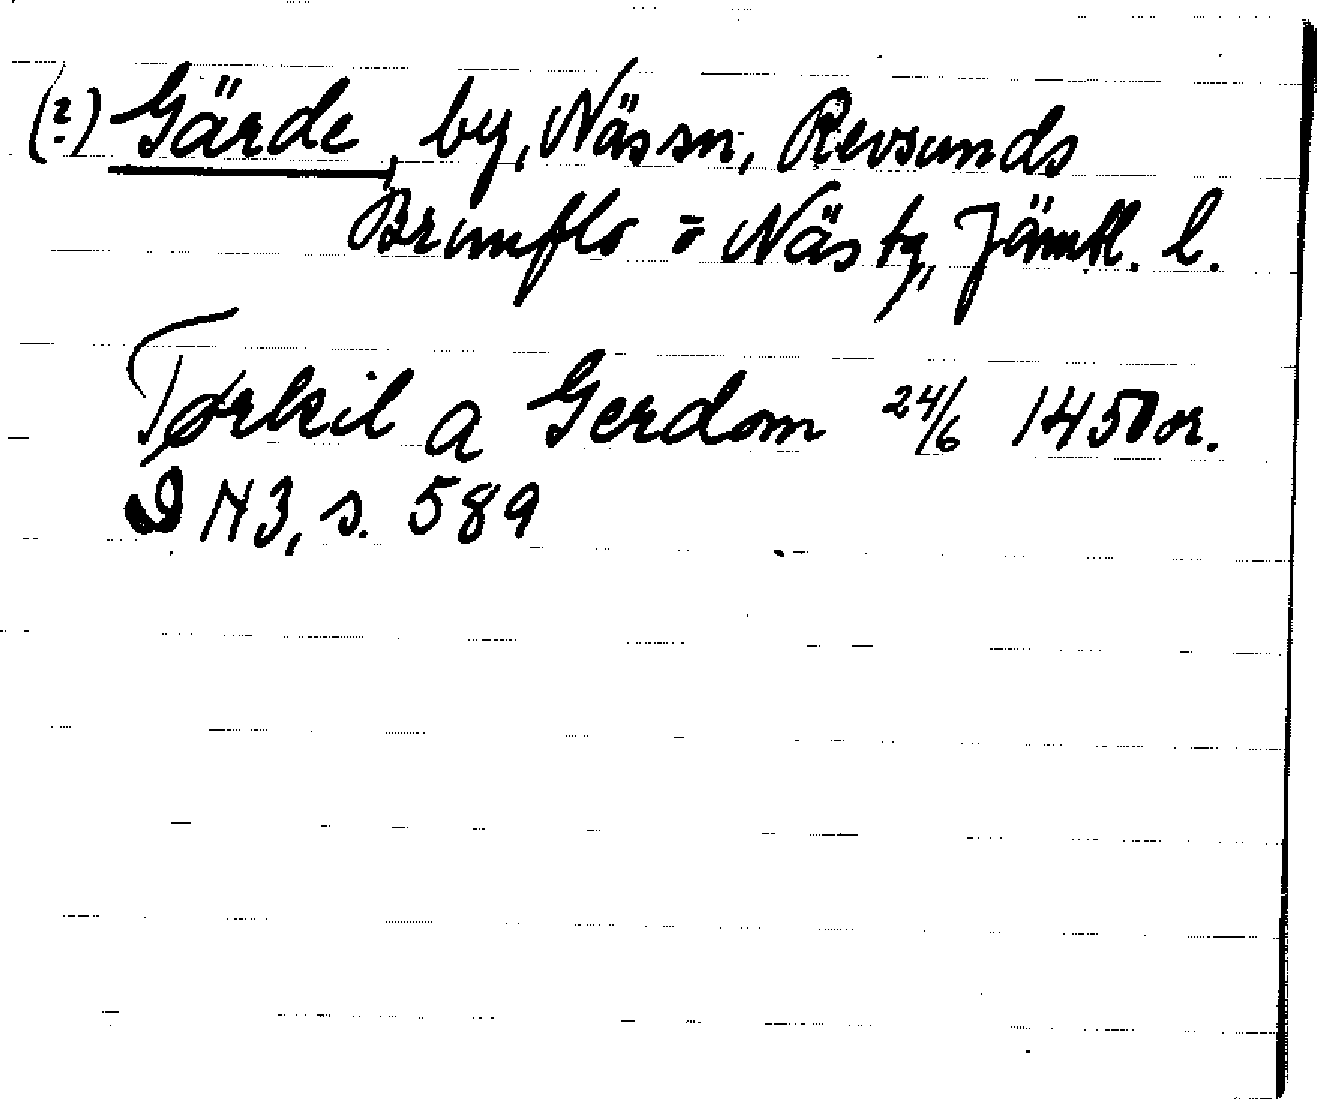 (?) Gärde, by, Näs sn, Revsunds
Brunflo o Näs tg, Jämtl. l.
Tørkil a Gerdom 24/6 1450 or.
DN3, s. 589